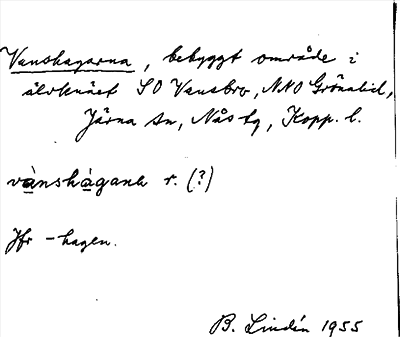 Vanshagarna, bebyggt område i
älvknäet SO Vansbro, NNO Grönalid,
Järna sn, Nås tg, Kopp. l.
vànshàgana r. (?)
Jfr -hagen.
B. Lindén 1955